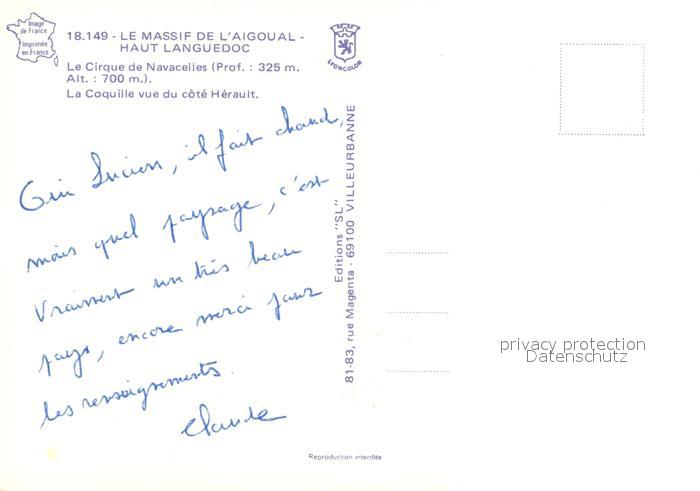 Image
de France
Imprimée
en France
18.149 - LE MASSIF DE L'AIGOUAL -
HAUT LANGUEDOC
Le Cirque de Navacelles (Prof. : 325 m.
Alt. : 700 m.).
La Coquille vue du côté Hérault.
LYONCOLOR
Oui Lucien, il fait chaud,
mais quel paysage, c'est
vraiment un très beau
pays, encore merci pour
les renseignements.
Claude
Editions "SL"
81-83, rue Magenta - 69100 VILLEURBANNE
privacy protection
Datenschutz
Reproduction interdite